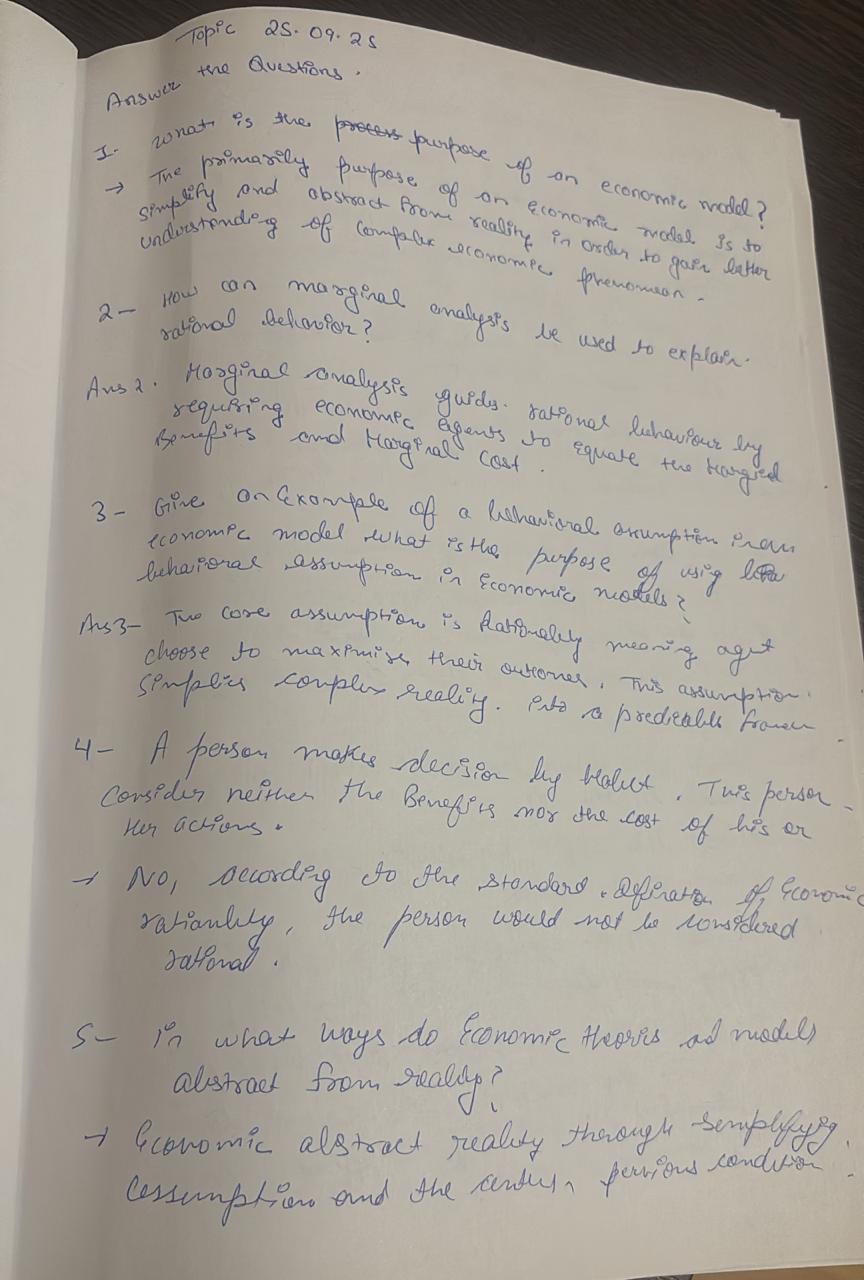 Topic 25.09.25
Answer the Questions.
1. What is the process purpose of an economic model?
→ The primarily purpose of an economic model is to
simplify and abstract from reality in order to gain better
understanding of complex economic phenomean.
2- How can marginal analysis be used to explain.
rational behavior?
Ans 2. Marginal analysis guids. rational behaviour by
requiring economic agents to equate the
Benefits and Marginal cost.
3- Give an Example of a behavioral assumption in an
economic model what is the purpose of using
behaioral assumption in Economic models?
Ans 3- Two core assumption is meaning agent
choose to maximise their outcomes. This assumption.
Simplies complex reality. into a predictable
4- A person makes decision by Habit. This person
Consider neither the Benefits nor the cost of his or
Her actions.
→ No, according to the standard. of Economic
the person would not be considered
rational.
5- in what ways do Economic theoris ad models
abstract from reality?
→ Economic abstract reality through semplifying
assumption and the condition